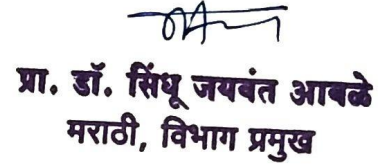 प्रा. डॉ. सिंधू जयवंत आबळे
मराठी, विभाग प्रमुख